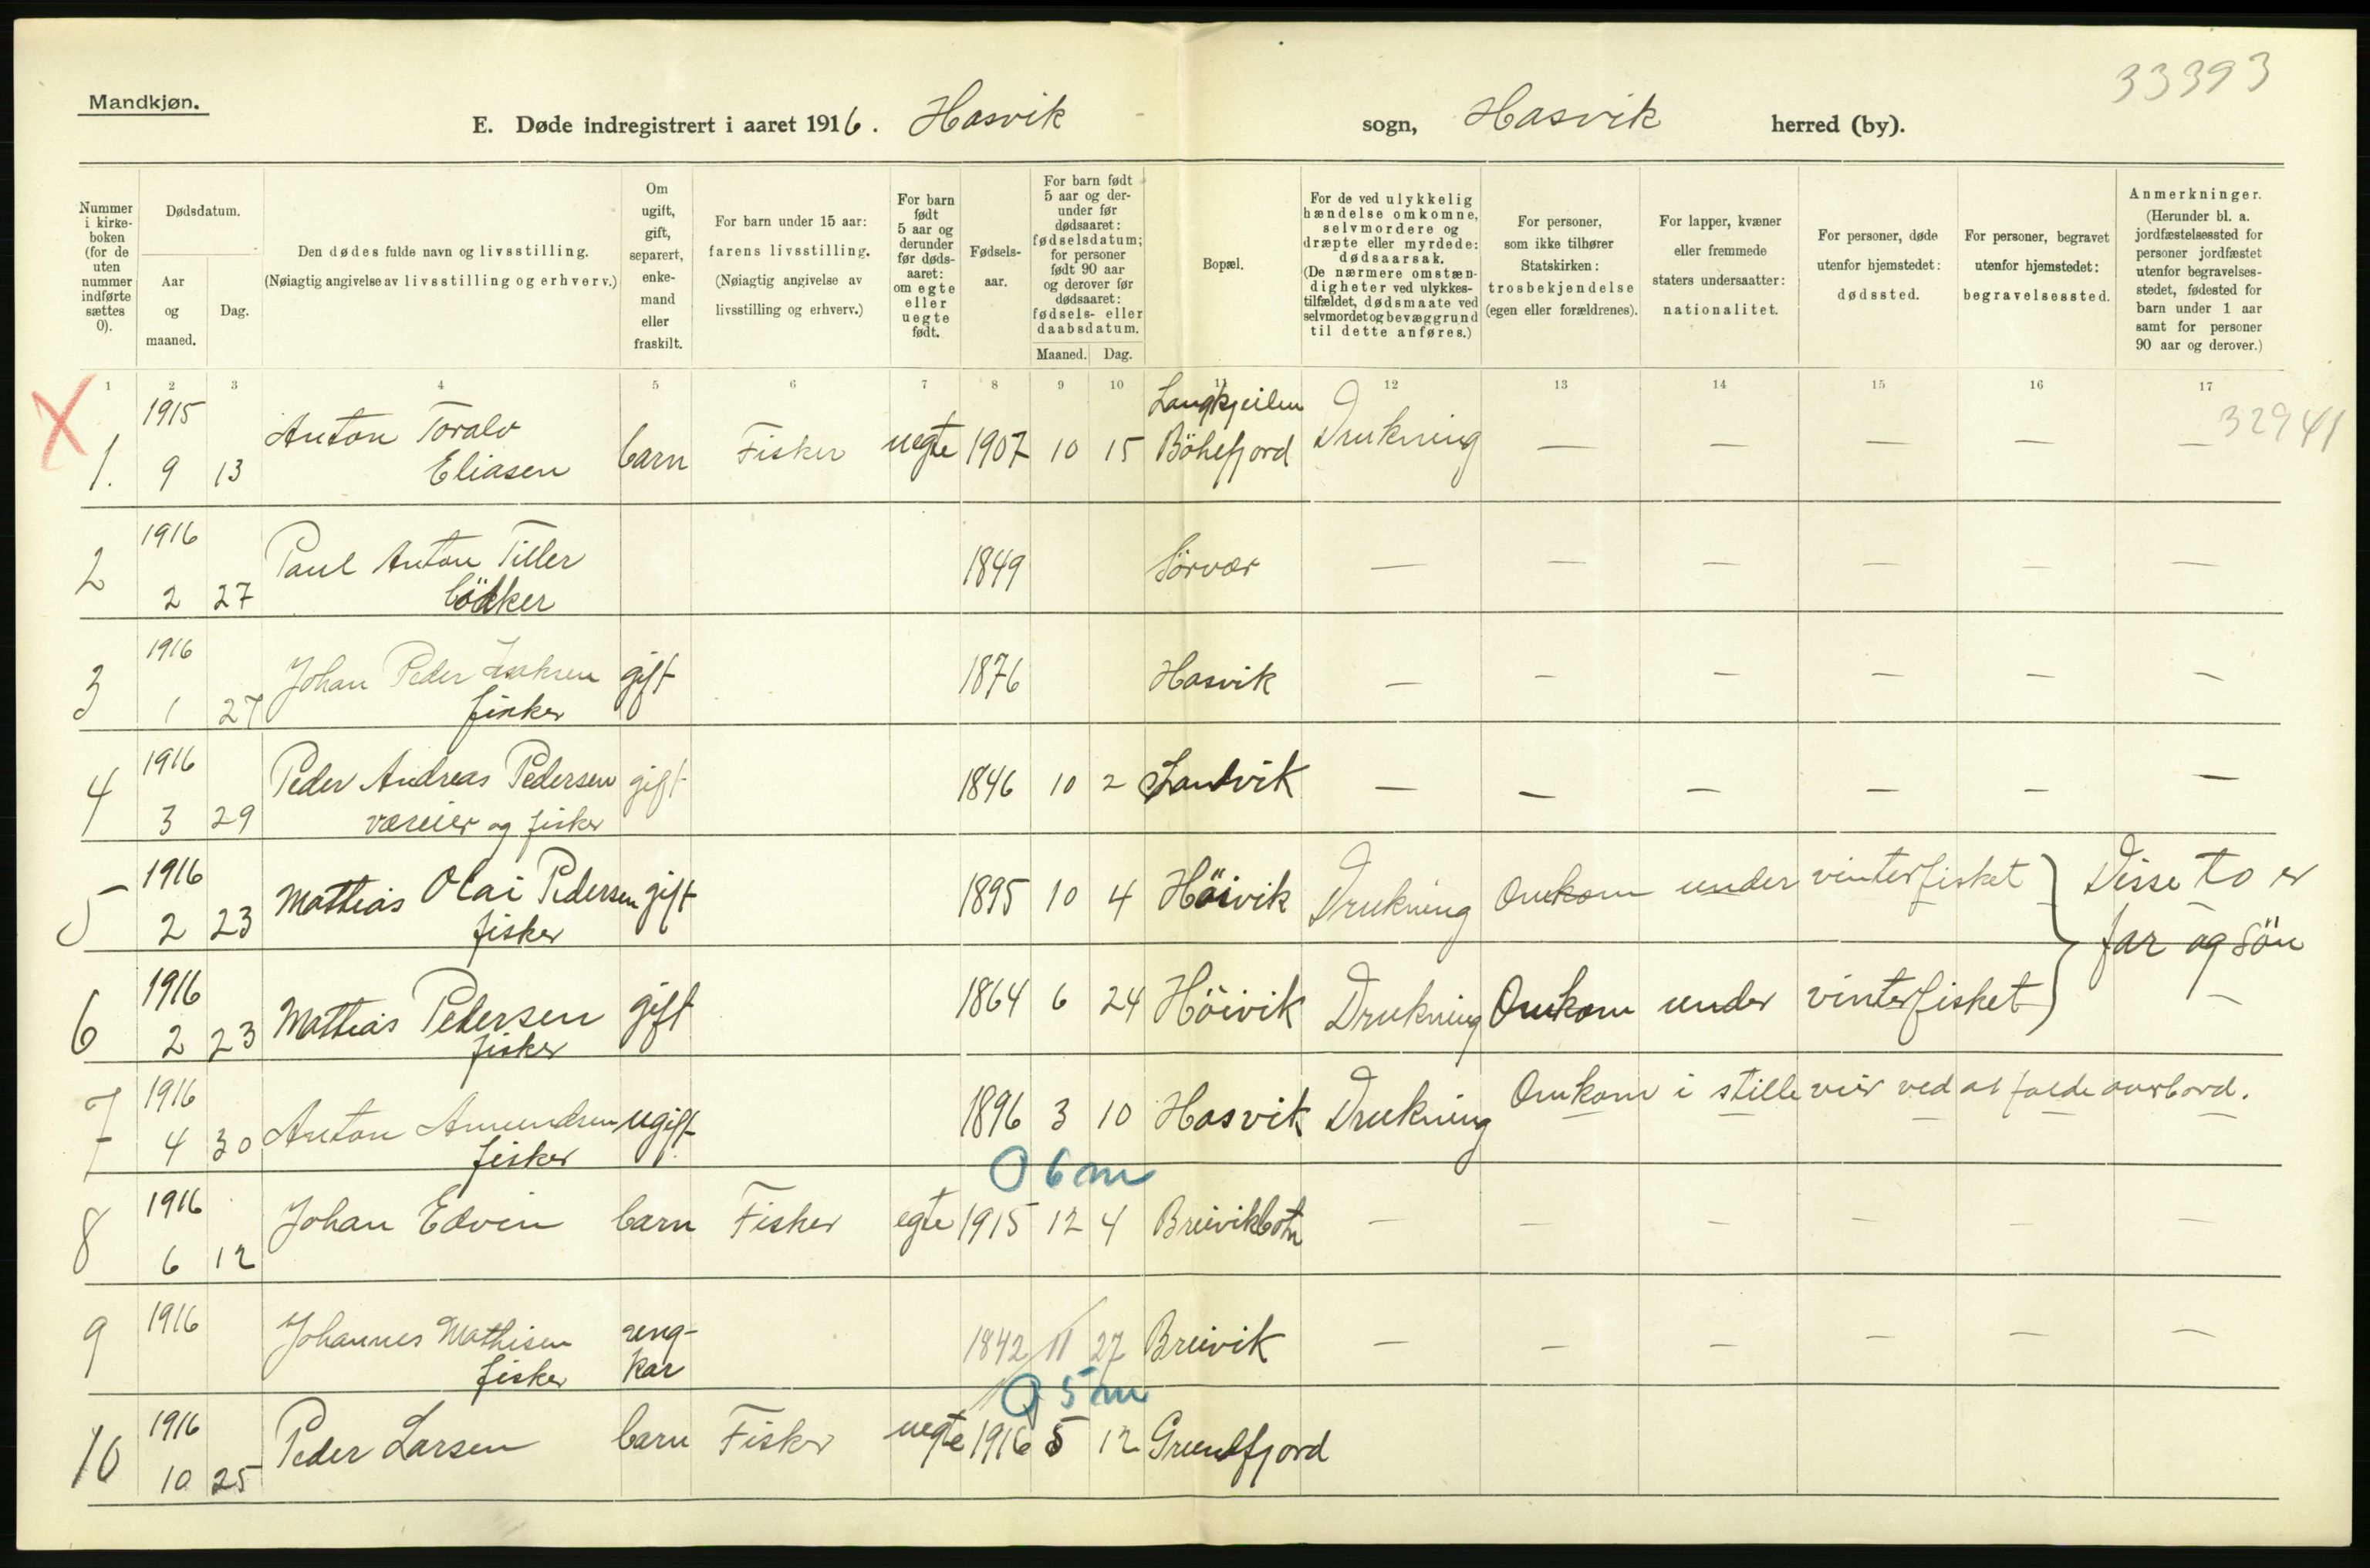 33393
Mandkjøn.
E. Døde indregistrert i aaret 1916. Hasvik sogn, Hasvik herred (by).
Nummer i kirkeboken (for de uten nummer indførte sættes 0).
Dødsdatum.
Aar og maaned.
Dag.
Den dødes fulde navn og livsstilling.
(Nøiagtig angivelse av livsstilling og erhverv.)
Om ugift, gift, separert, enkemand eller fraskilt.
For barn under 15 aar:
farens livsstilling.
(Nøiagtig angivelse av livsstilling og erhverv.)
For barn født 5 aar og derunder før dødsaaret: om egte eller uegte født.
Fødselsaar.
For barn født 5 aar og derunder før dødsaaret: fødselsdatum; for personer født 90 aar og derover før dødsaaret: fødsels- eller daabsdatum.
Maaned. Dag.
Bopæl.
For de ved ulykkelig hændelse omkomne, selvmordere og dræpte eller myrdede: dødsaarsak.
(De nærmere omstændigheter ved ulykkestilfældet, dødsmaate ved selvmordet og bevæggrund til dette anføres.)
For personer, som ikke tilhører Statskirken: trosbekjendelse (egen eller forældrenes).
For lapper, kvæner eller fremmede staters undersaatter: nationalitet.
For personer, døde utenfor hjemstedet: dødssted.
For personer, begravet utenfor hjemstedet: begravelsessted.
Anmerkninger.
(Herunder bl. a. jordfæstelsessted for personer jordfæstet utenfor begravelsesstedet, fødested for barn under 1 aar samt for personer 90 aar og derover.)
1 2 3 4 5 6 7 8 9 10 11 12 13 14 15 16 17
X
1. 1915 9 13 Anton Toralv Eliasen barn Fisker uegte 1907 10 15 Böhefjord Drukning — — — — — 32941
2 1916 2 27 Paul Anton Tiller bödker 1849 Sörvær — — — — — —
3 1916 1 27 Johan Peder fisker gift 1876 Hasvik — — — — — —
4 1916 3 29 Peder Andreas Pedersen væreier og fisker gift 1846 10 2 Sandvik — — — — — —
5 1916 2 23 Mathias Olai Pedersen fisker gift 1895 10 4 Höivik Drukning Omkom under vinterfisket } Disse to er far og sön
6 1916 2 23 Mathias Pedersen fisker gift 1864 6 24 Höivik Drukning Omkom under vinterfisket —
7 1916 4 30 Anton Amundsen fisker ugift 1896 3 10 Hasvik Drukning Omkom i stille veir ved at falde overbord.
0 6 m
8 1916 6 12 Johan Edvin barn Fisker egte 1915 12 4 Breivikbotn — — — — — —
9 1916 Johannes Mathisen fisker ungkar 1842 11 27 Breivik — — — — — —
0 5 m
10 1916 10 25 Peder Larsen barn Fisker uegte 1916 5 12 Grundfjord